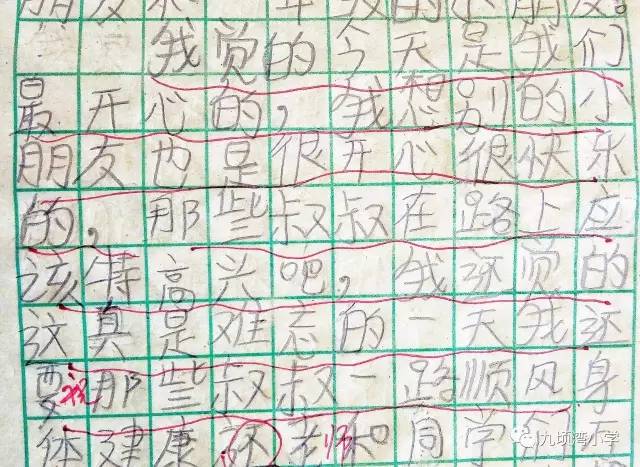 朋友 年级的小朋友。
我觉的今天是我们
最开心的，我想别的小
朋友也是很开心很快乐
的，那些叔叔在路上应
该特高兴吧，我还觉的
这真是难忘的一天我还
要祝那些叔叔一路顺风身
体健康 老师和同学
九顷湾小学